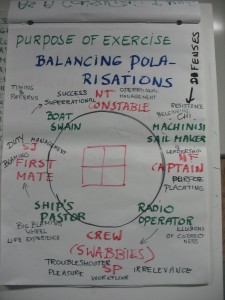 PURPOSE OF EXERCISE
BALANCING POLA-
RISATIONS
DEFENSES
TIMING &
PATTERNS
SUCCESS
SUPERRATIONAL
NT
CONSTABLE
OPERATIONAL
MANAGEMENT
BOAT
SWAIN
RESISTANCE
MACHINIST
SAIL MAKER
DUTY
MANAGEMENT
BLAMING
SJ
FIRST
MATE
LEADERSHIP
NF
CAPTAIN
PLACATING
SHIP'S
PASTOR
RADIO
OPERATOR
BIG
WHEEL
LIFE EXPERIENCE
ILLUSIONS
OF CORRECT
NESS
CREW
(SWABBIES)
TROUBLESHOOTER
SP
IRRELEVANCE
PLEASURE
WORKFLOW